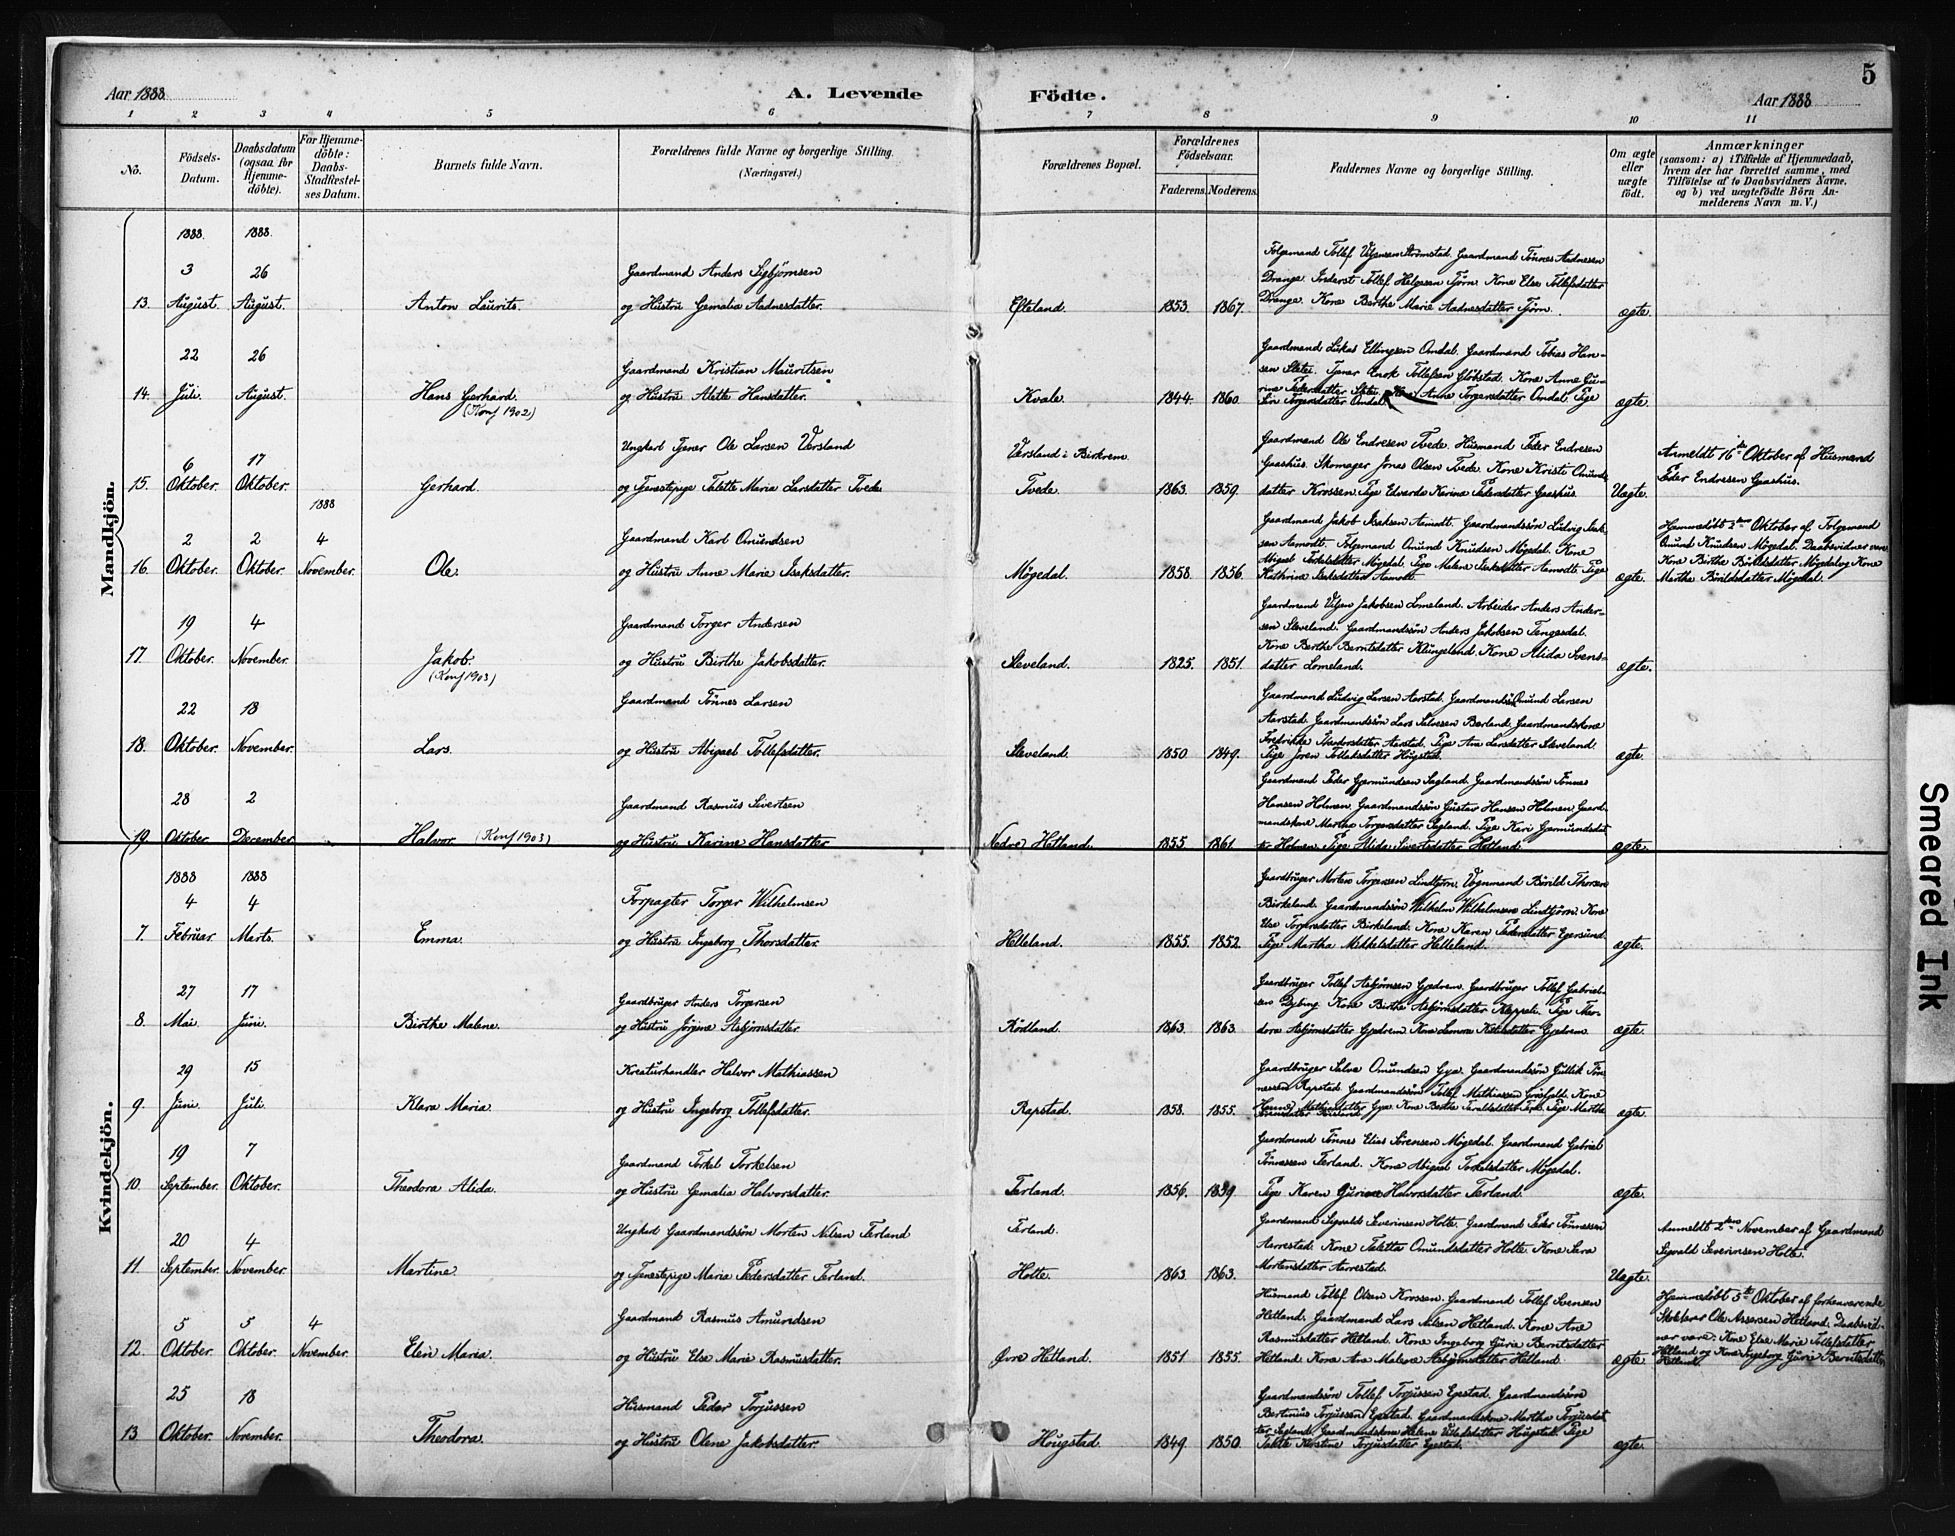 5
Aar 1888.
A. Levende
Födte.
Aar 1888
1 2 3 4 5 6 7 8 9 10 11
No.
Födsels-
Datum.
Daabsdatum
(ogsaa for
Hjemme-
döbte).
For Hjemme-
döbte:
Daabs-
Stadfæstel-
ses Datum.
Barnets fulde Navn.
Forældrenes fulde Navne og borgerlige Stilling.
(Næringsvei.)
Forældrenes Bopæl.
Forældrenes
Födselsaar.
Faderens. Moderens.
Faddernes Navne og borgerlige Stilling.
Om ægte
eller
uægte
födt.
Anmærkninger
(saasom: a) i Tilfælde af Hjemmedaab,
hvem der har forrettet samme, med
Tilföielse af to Daabsvidners Navne,
og b) ved uægtefödte Börn An-
melderens Navn m. V.)
Mandkjön.
1888. 1888.
3 26
13. August. August.
Anton Laurits.
Gaardmand Anders Sigbjørnsen
og Hustru Gemalia Aadnesdatter.
Efteland.
1853. 1867.
Folgemand Tollef Ulgensen Strømstad. Gaardmand Tønnes Aadnesen
Drange. Inderst Tollef Helgesen Tjørn. Kone Else Tollefsdatter
Drange. Kone Berthe Marie Aadnesdatter Tjørn.
ægte.
22 26
14. Juli. August.
Hans Gerhard.
(Konf 1902)
Gaardmand Kristian Mauritsen
og Hustru Alette Hansdatter.
Kvale.
1844. 1860.
Gaardmand Lukas Ellingsen Omdal. Gaardmand Tobias Han-
sen Slettei. Tjener Enok Tollefsen Globstad. Kone Anne Gu-
rine Pedersdatter Slettei. Kone Anne Torgersdatter Omdal. Pige
Siri Torgersdatter Omdal.
ægte.
6 17
15. Oktober. Oktober.
Gerhard.
Ungkarl Tjener Ole Larsen Versland
og Tjenestepige Talette Maria Larsdatter Tvede
Versland i Birkrem.
Tvede.
1863. 1859.
Gaardmand Ole Endresen Tvede. Husmand Peder Endresen
Gaashus. Skomager Jonas Olsen Tvede. Kone Kristi Omunds-
datter Krossen. Pige Edvarda Karina Pedersdatter Gaashus.
Uægte.
Anmeldt 16de Oktober af Husmand
Peder Endresen Gaashus.
1888
2 2 4
16. Oktober. Oktober. November.
Ole.
Gaardmand Karl Omundsen
og Hustru Anne Marie Isaksdatter.
Møgedal.
1858. 1856.
Gaardmand Jakob Isaksen Aamodt. Gaardmandssøn Ludvig Isak-
sen Aamodt. Folgemand Omund Knudsen Møgedal. Kone
Abigael Torkelsdatter Møgedal. Pige Malene Isaksdatter Aamodt. Pige
Kathrine Isaksdatter Aamodt.
ægte.
Hjemmedøbt 2den Oktober af Folgemand
Omund Knudsen Møgedal. Daabsvidner vare
Kone Birthe Børildsdatter Møgedal og Kone
Martha Børildsdatter Møgedal.
19 4
17. Oktober. November.
Jakob.
(Konf 1903)
Gaardmand Torger Andersen
og Hustru Birthe Jakobsdatter.
Sleveland.
1825. 1851.
Gaardmand Ulgen Jakobsen Lomeland. Arbeider Anders Ander-
sen Sleveland. Gaardmandssøn Anders Jakobsen Tengesdal.
Kone Berthe Berntsdatter Klungeland. Kone Alida Svens-
datter Lomeland.
ægte.
22 18
18. Oktober. November.
Lars.
Gaardmand Tønnes Larsen
og Hustru Abigael Tollefsdatter.
Sleveland.
1850 1849.
Gaardmand Ludvig Larsen Aarstad. Gaardmands. Omund Larsen
Aarstad. Gaardmandssøn Lars Salvesen Berland. Gaardmandskone
Fredrikke Isaksdatter Aarstad. Pige Ane Larsdatter Sleveland.
Pige Joren Tollaksdatter Hugstad.
ægte.
28 2
19. Oktober. December.
Halvor. (Konf 1903)
Gaardmand Rasmus Sivertsen
og Hustru Karine Hansdatter
Nedre Hetland.
1855. 1861.
Gaardmand Peder Gjermundsen Sagland. Gaardmandssøn Tønnes
Hansen Holmen. Gaardmandssøn Gustav Hansen Holmen. Gaard-
mandskone Martha Torgersdatter Sagland. Pige Kari Germundsdat-
ter Holmen. Pige Alida Sivertsdatter Hetland.
ægte.
Kvindekjön.
1888 1888
4 4
7. Februar. Marts.
Emma.
Forpagter Torger Wilhelmsen
og Hustru Ingeborg Thorsdatter.
Helleland.
1855. 1852.
Gaardbruger Morten Torgersen Lindtjørn. Vognmand Børild Thorsen
Birkeland. Gaardmandssøn Wilhelm Wilhelmsen Lindtjørn. Kone
Else Torgersdatter Birkeland. Kone Karen Pedersdatter Egersund.
Pige Martha Mikkelsdatter Helleland.
ægte.
27 17
8. Mai. Juni.
Birthe Malene.
Gaardbruger Anders Torgersen
og Hustru Jørgine Asbjørnsdatter.
Rødland.
1863. 1863.
Gaardbruger Tollef Asbjørnsen Gjedrem. Gaardbruger Tollef Gabriel-
sen Dybing. Kone Birthe Asbjørnsdatter Kleppeli. Pige The-
dora Asbjørnsdatter Gjedrem. Kone Lenora Ketelsdatter Gjedrem.
ægte.
29 15
9. Juni. Juli.
Klara Maria.
Kreaturhandler Halvor Mathiassen
og Hustru Ingeborg Tollefsdatter.
Rapstad.
1858. 1855.
Gaardbruger Salve Omundsen Gya. Gaardmandssøn Gullik Tøn-
nessen Rapstad. Gaardmandssøn Tollef Mathiassen. Kone
Mathiasdatter Gya. Kone Berthe. Pige Martha
ægte.
19 7
10. September. Oktober.
Theodora Alida.
Gaardmand Torkel Torkelsen
og Hustru Gemalia Halvorsdatter.
Terland.
1856. 1859.
Gaardmand Tønnes Elias Sørensen Møgedal. Gaardmand Gabriel
Tønnessen Terland. Kone Abigael Torkelsdatter Møgedal.
Pige Karen Gurine Halvorsdatter Terland.
ægte.
20 4
11. September. November.
Martine.
Ungkarl Gaardmandssøn Morten Nilsen Terland
og Tjenestepige Maria Pedersdatter Terland.
Terland.
Holte.
1863. 1863.
Gaardmand Sigvald Severinsen Holte. Gaardmand Peder Tønnessen
Aarrestad. Kone Taletta Omundsdatter Holte. Kone Sara
Mortensdatter Aarrestad.
Uægte.
Anmeldt 2den November af Gaardmand
Sigvald Severinsen Holte.
5 5 4
12. Oktober. Oktober. November.
Elen Maria.
Gardmand Rasmus Amundsen
og Hustru Else Marie Rasmusdatter.
Øvre Hetland.
1851 1855.
Husmand Tollef Olsen Krossen. Gaardmand Tollef Svensen
Hetland. Gaardmand Lars Nilsen Hetland. Kone Ane
Rasmusdatter Hetland. Kone Ingeborg Gurie Berntsdatter
Hetland. Kone Ane Malene Asbjørnsdatter Hetland.
ægte.
Hjemmedøbt 5te Oktober af forhenværende
Skolelærer Ole Assersen Hetland. Daabsvid-
ner vare: Kone Else Marie Tollefsdatter
Hetland og Kone Ingeborg Gurie Berntsdatter
Hetland.
25 18
13. Oktober. November.
Theodora.
Husmand Peder Torjussen
og Hustru Olene Jakobsdatter.
Hougstad.
1849. 1850.
Gaardmandssøn Tollef Torjussen Egestad. Gaardmandssøn
Bertinius Torjussen Egestad. Gaardmandskone Martha Torjusdat-
ter Sagland. Gaardmandskone Helene Hugstad. Pige
Talette Kirstine Torjusdatter Egestad.
ægte.
Smeared Ink